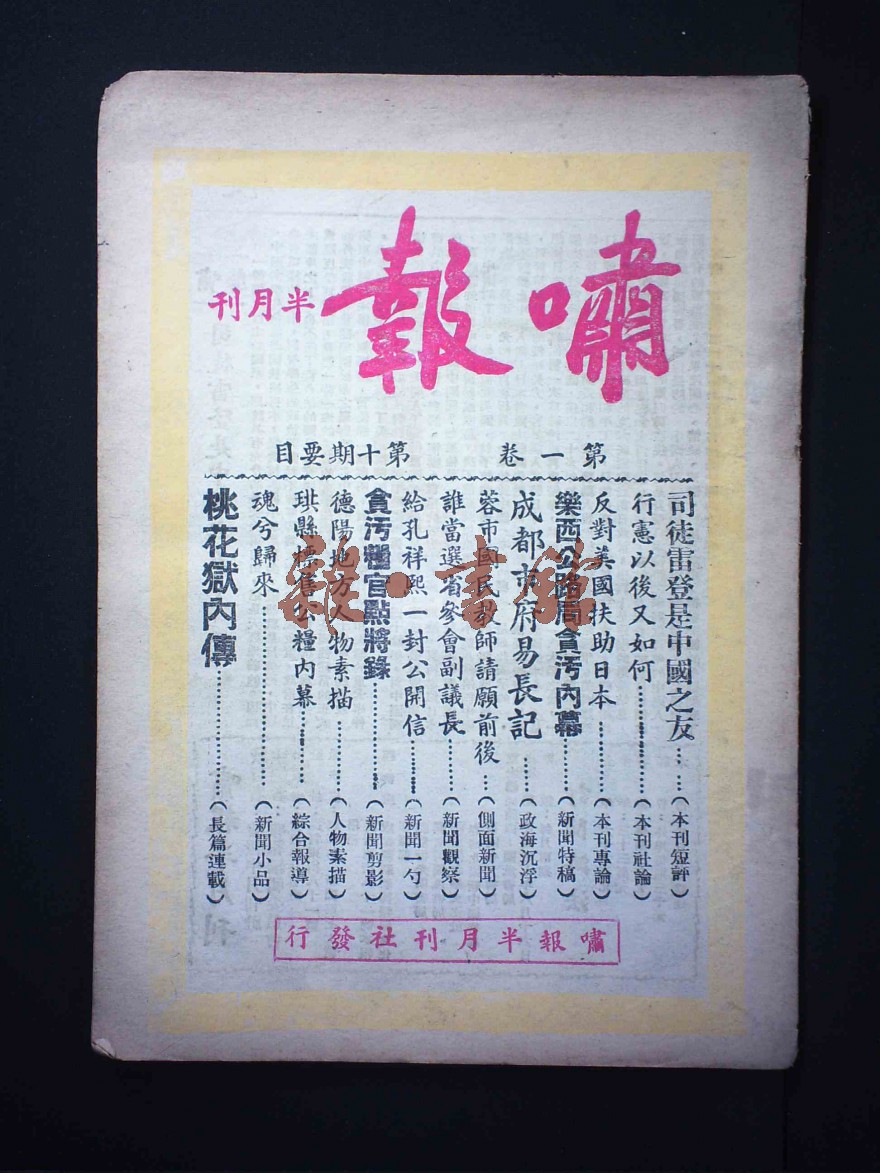 嘯報
半月刊
第一卷 第十期要目
司徒雷登是中國之友……（本刊短評）
行憲以後又如何……（本刊社論）
反對美國扶助日本……（本刊專論）
樂西公路局貪汚內幕……（新聞特稿）
成都市府易長記……（政海沉浮）
蓉市國民教師請願前後……（側面新聞）
誰當選省參會副議長……（新聞觀察）
給孔祥熙一封公開信……（新聞一勺）
貪汚糧官點將錄……（新聞剪影）
德陽地方人物素描……（人物素描）
珙縣標售公糧內幕……（綜合報導）
魂兮歸來……（新聞小品）
桃花獄內傳……（長篇連載）
嘯報半月刊社發行
雜·書館